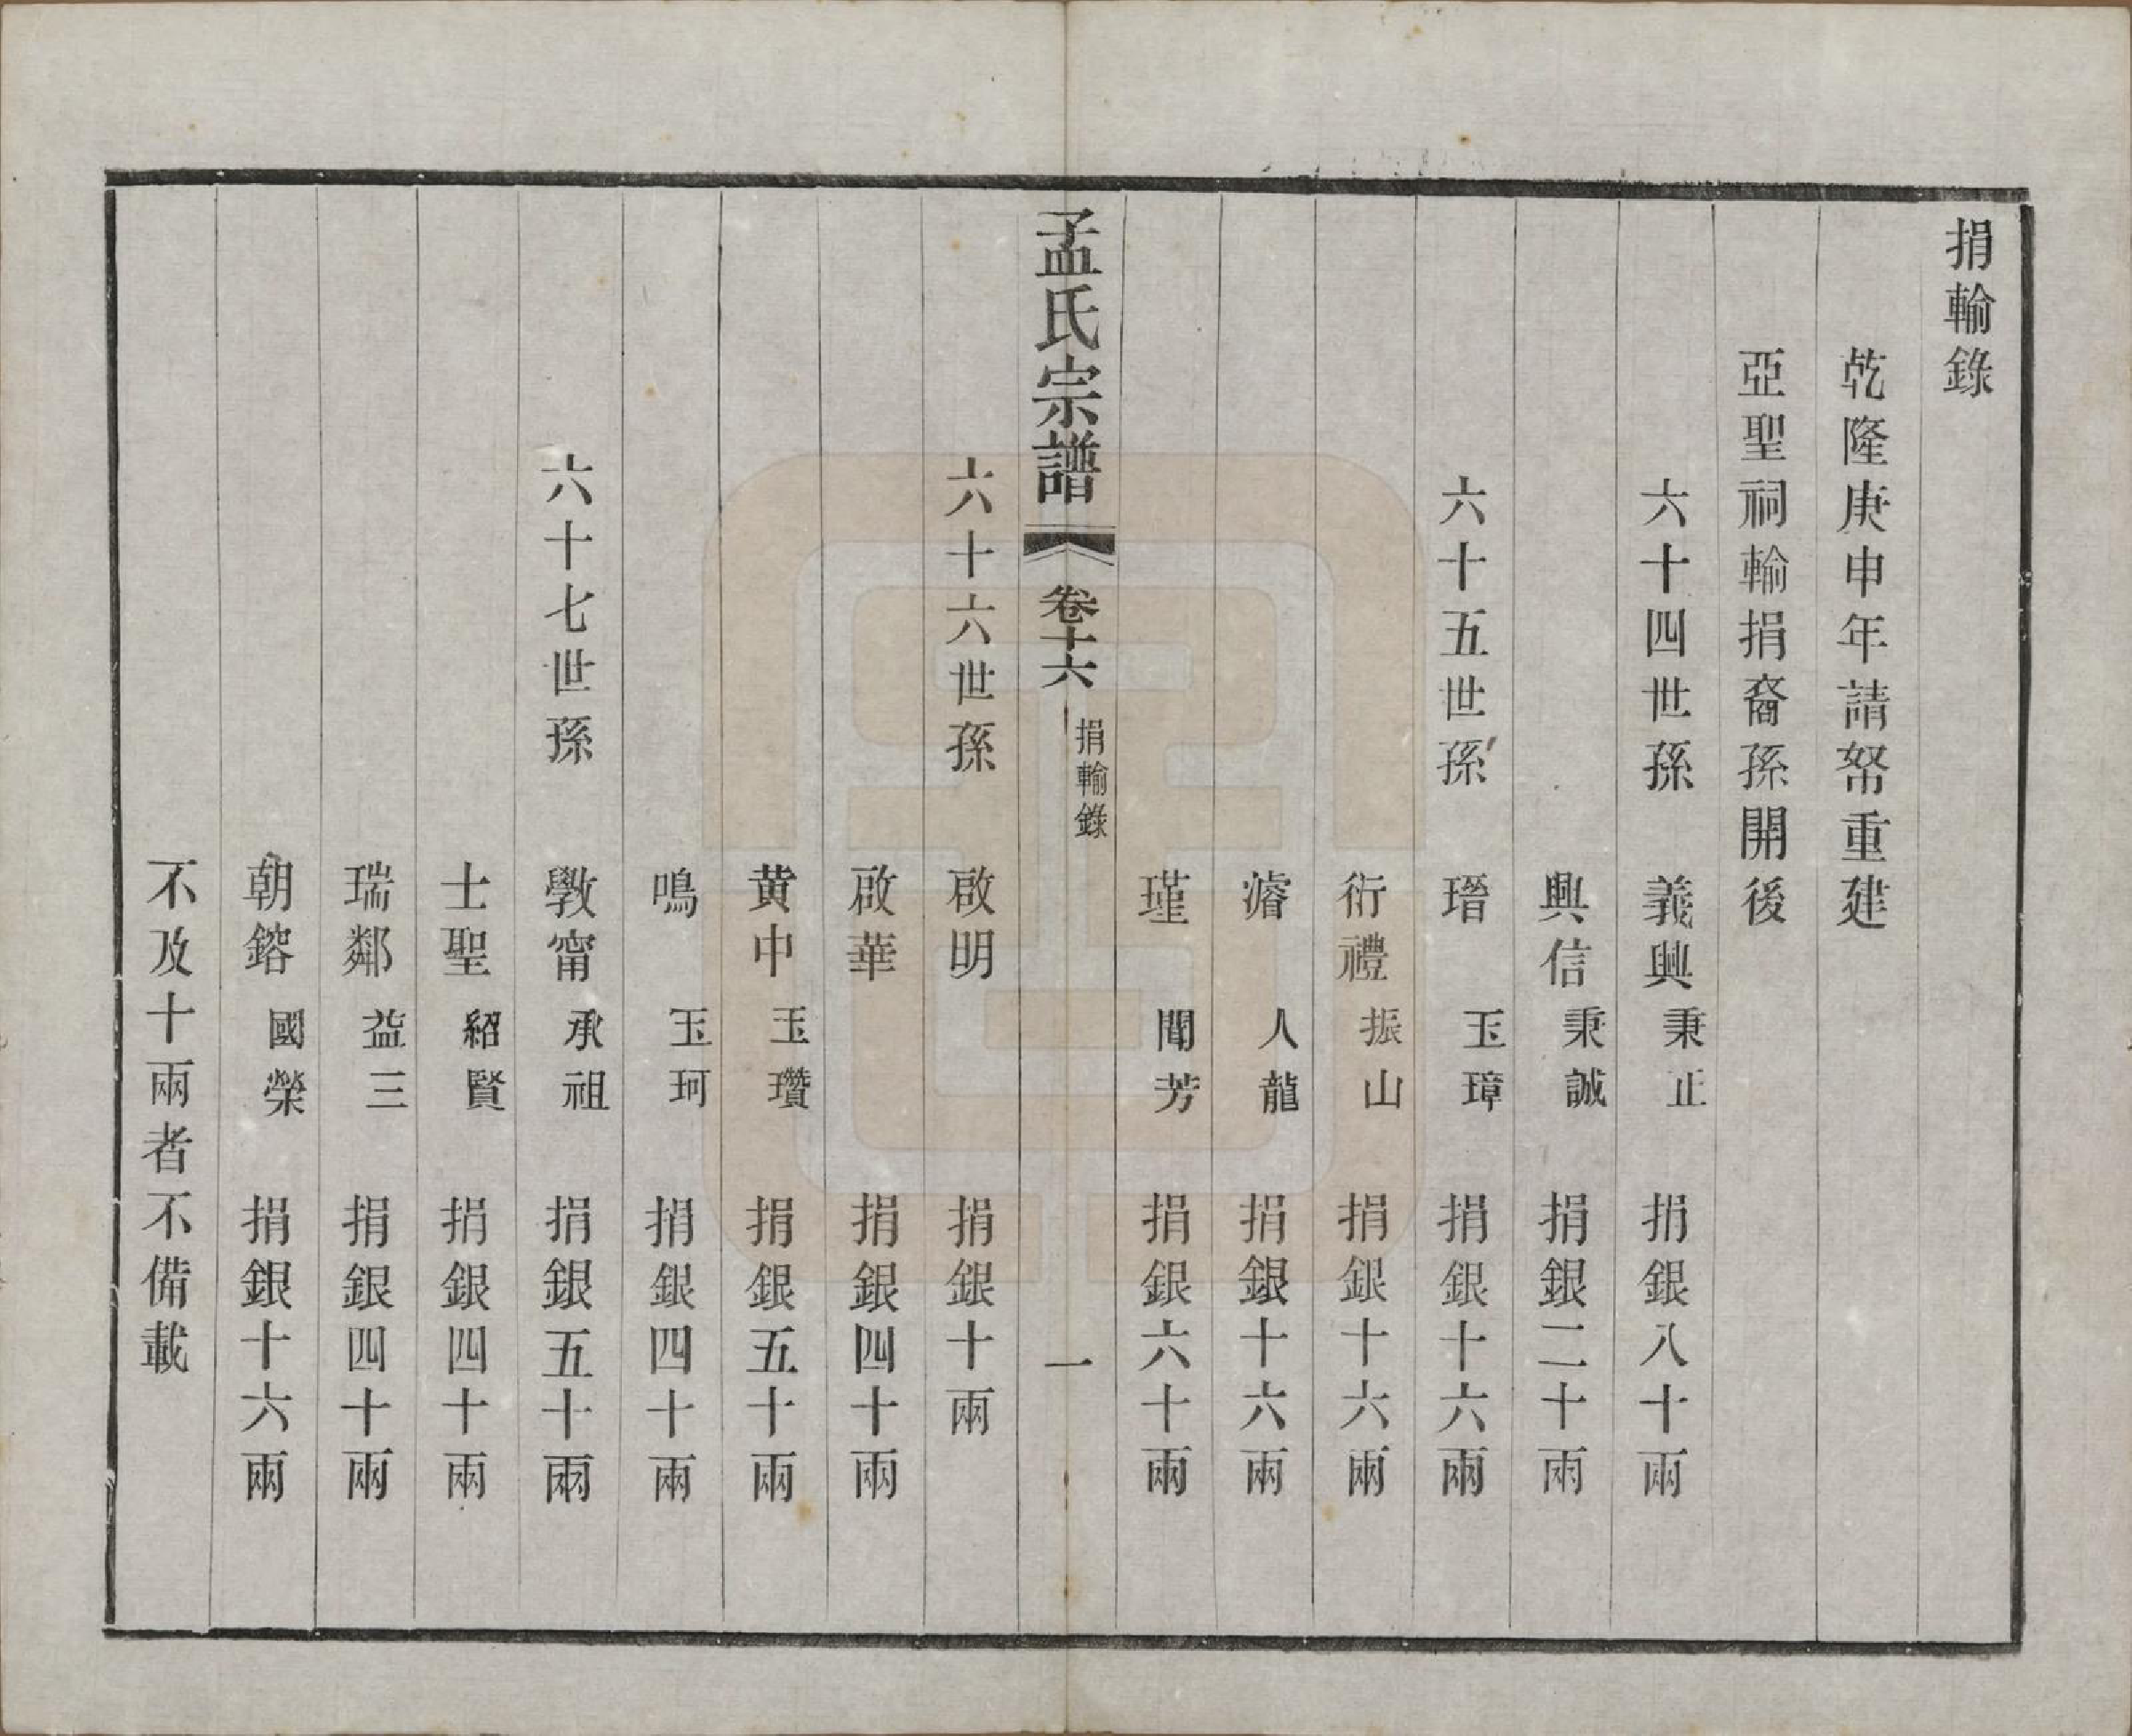 捐輸錄
乾隆庚申年請帑重建
亞聖祠輸捐裔孫開後
六十四世孫 義興 秉正 捐銀八十兩
興信 秉誠 捐銀二十兩
六十五世孫 瑨 玉璋 捐銀十六兩
衍禮 振山 捐銀十六兩
濬 人龍 捐銀十六兩
瑾 聞芳 捐銀六十兩
孟氏宗譜 卷十六 捐輸錄 一
六十六世孫 啟明 捐銀十兩
啟華 捐銀四十兩
黄中 玉瓚 捐銀五十兩
鳴 玉珂 捐銀四十兩
六十七世孫 斆甯 承祖 捐銀五十兩
士聖 紹賢 捐銀四十兩
瑞鄰 益三 捐銀四十兩
朝鎔 國榮 捐銀十六兩
不及十兩者不備載